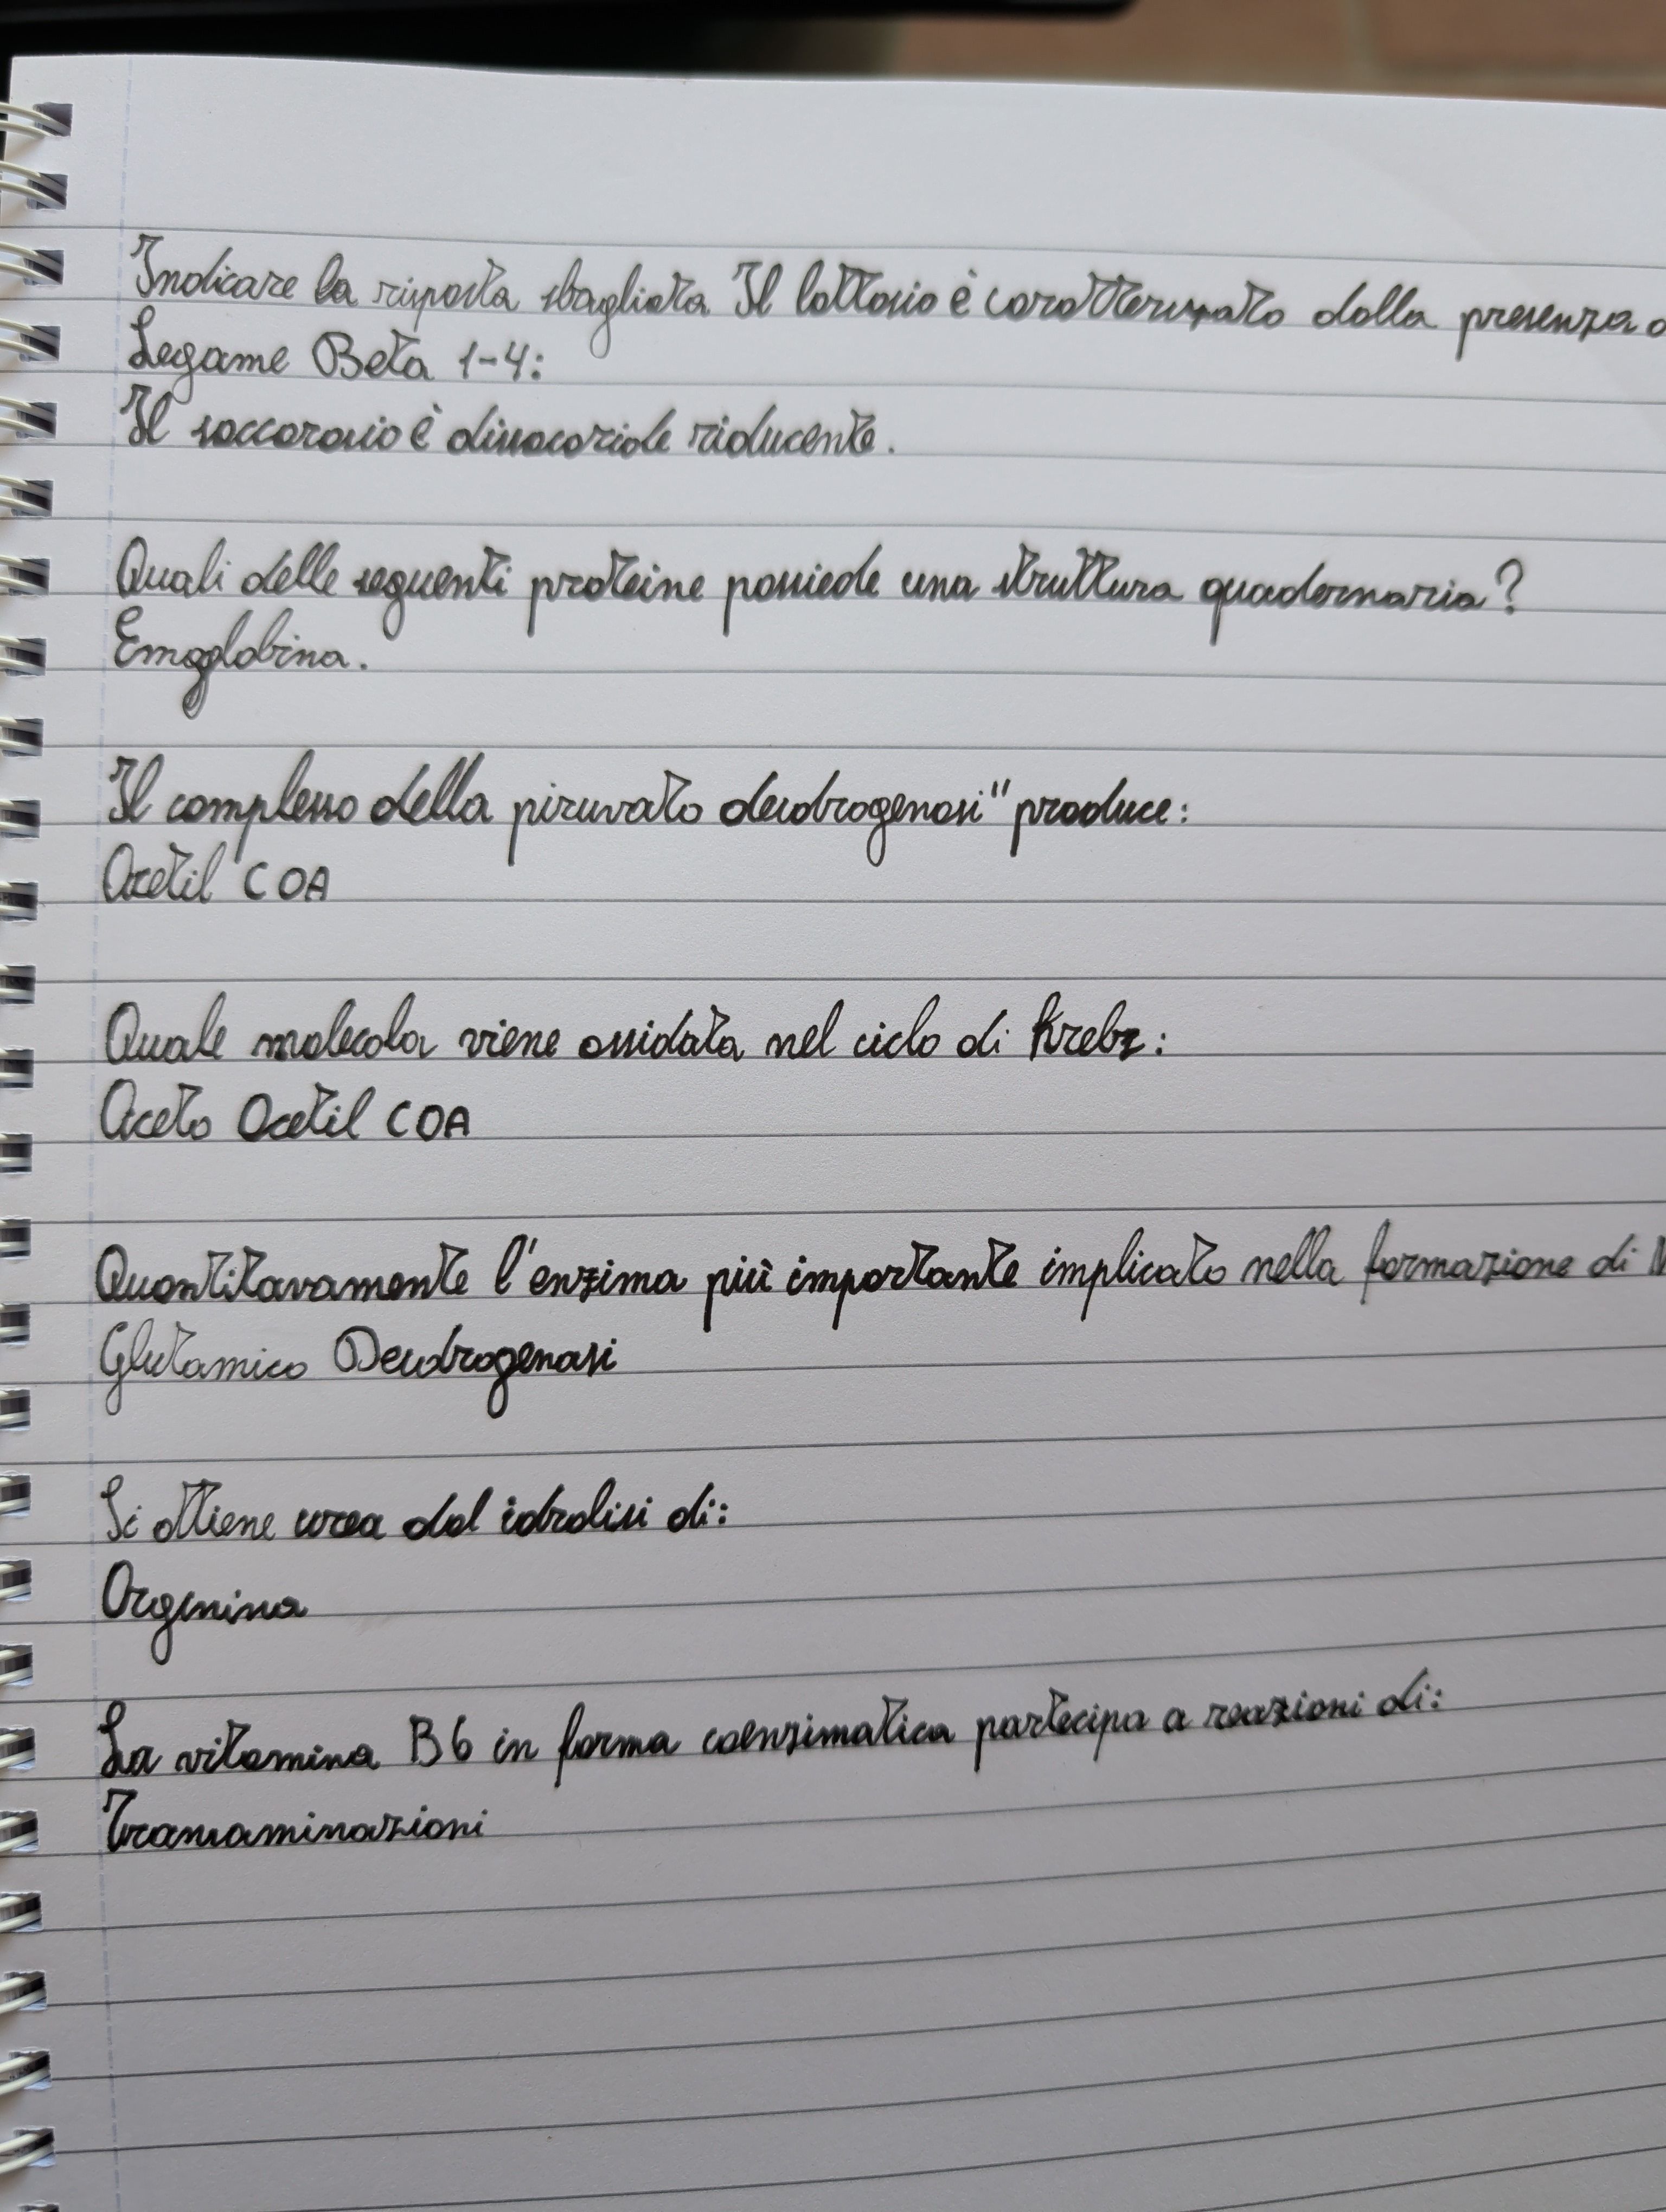 Indicare la risposta sbagliata Il lattosio è caratterizzato dalla presenza
Legame Beta 1-4:
Il saccarosio è disaccaride riducente.
Quali delle seguenti proteine possiede una struttura quadernaria?
Emoglobina.
Il complesso della piruvato deidrogenasi" produce:
Acetil COA
Quale molecola viene ossidata nel ciclo di Krebz:
Aceto Acetil COA
Quantitavamente l'enzima più importante implicato nella formazione di
Glutamico Deidrogenasi
Si ottiene urea dal idrolisi di:
Arginina
La vitamina B6 in forma coenzimatica partecipa a reazioni di:
Transaminazioni